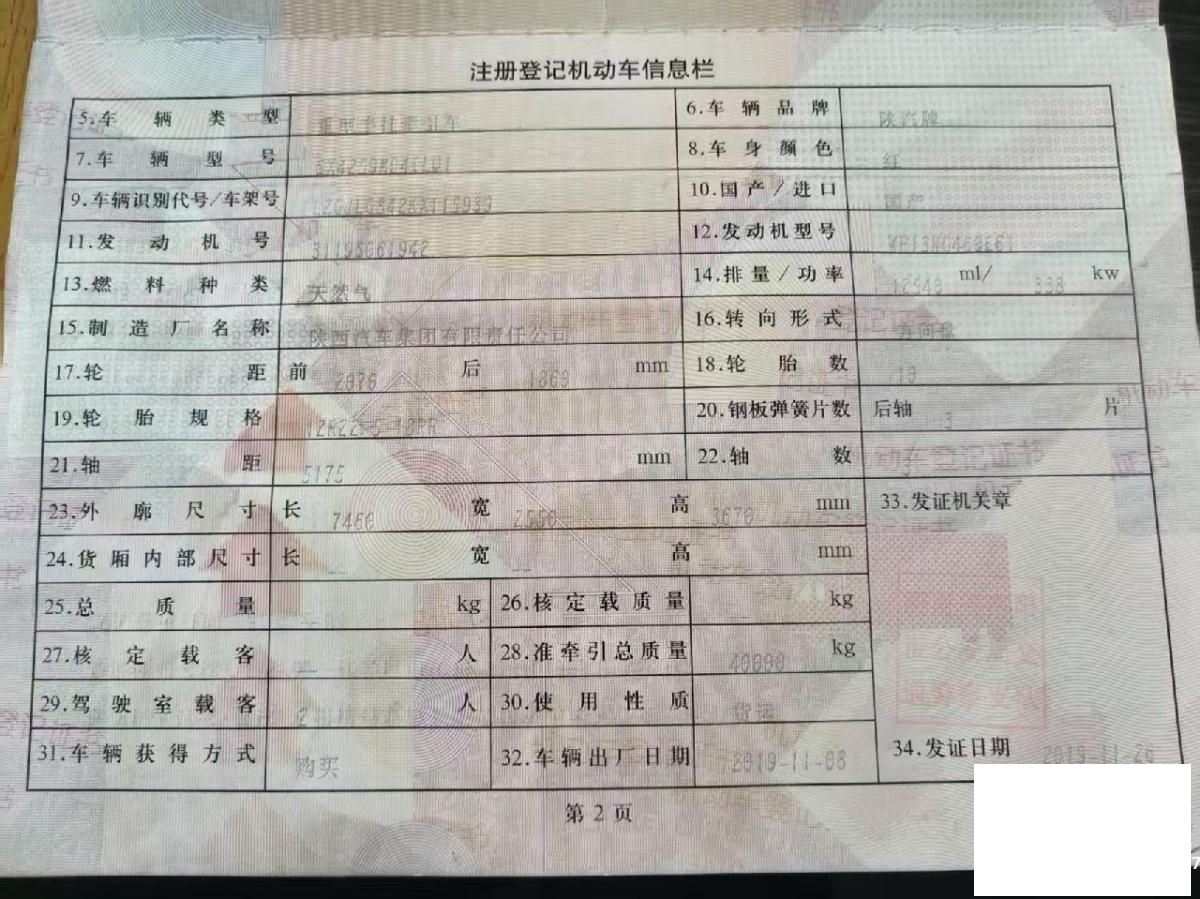 注册登记机动车信息栏
5.车辆类型 重型半挂牵引车 6.车辆品牌 陕汽牌
7.车辆型号 8.车身颜色 红
9.车辆识别代号/车架号 10.国产/进口 国产
11.发动机号 12.发动机型号
13.燃料种类 天然气 14.排量/功率 ml/ kw
15.制造厂名称 陕西汽车集团有限责任公司 16.转向形式 方向盘
17.轮距 前 后 1860 mm 18.轮胎数 10
19.轮胎规格 20.钢板弹簧片数 后轴 3 片
21.轴距 5175 mm 22.轴数
23.外廓尺寸 长 7460 宽 2550 高 3670 mm 33.发证机关章
24.货厢内部尺寸 长 宽 高 mm
25.总质量 kg 26.核定载质量 kg
27.核定载客 人 28.准牵引总质量 40000 kg
29.驾驶室载客 2 人 30.使用性质 货运
31.车辆获得方式 购买 32.车辆出厂日期 2019-11-08 34.发证日期 2019-11-26
第2页